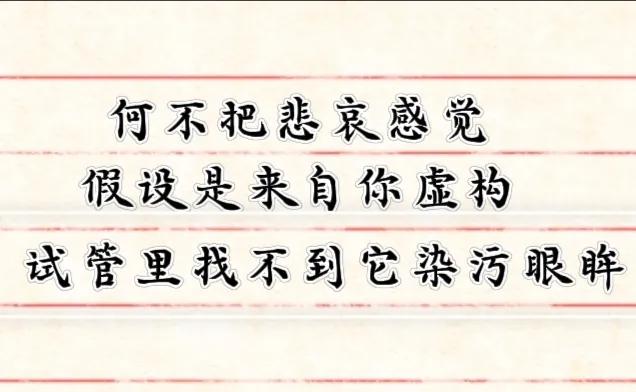 何不把悲哀感觉
假设是来自你虚构
试管里找不到它染污眼眸